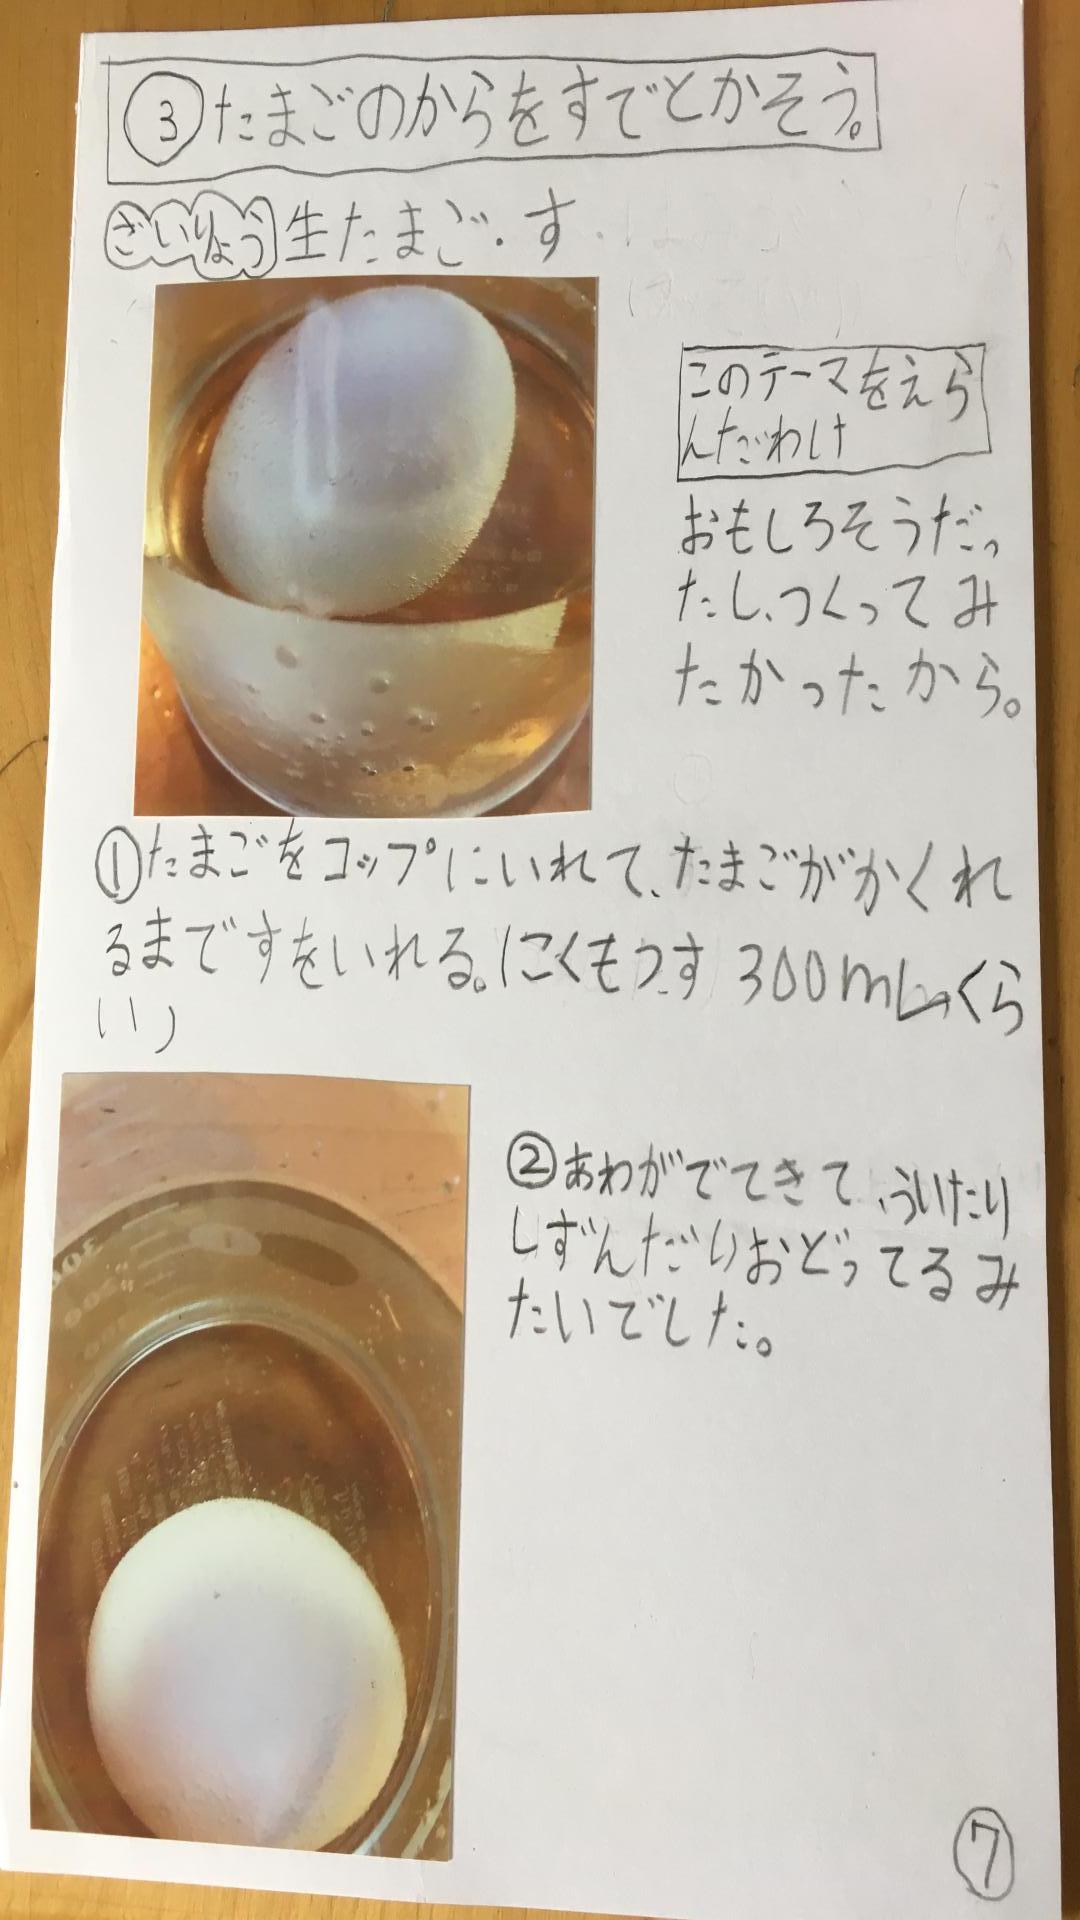 ③たまごのからをすでとかそう。
ざいりょう 生たまご・す
このテーマをえら
んだわけ
おもしろそうだっ
たし、つくってみ
たかったから。
①たまごをコップにいれて、たまごがかくれ
るまですをいれる。(こくもつす 300mLくら
い)
②あわがでてきて、ういたり
しずんだりおどってるみ
たいでした。
⑦